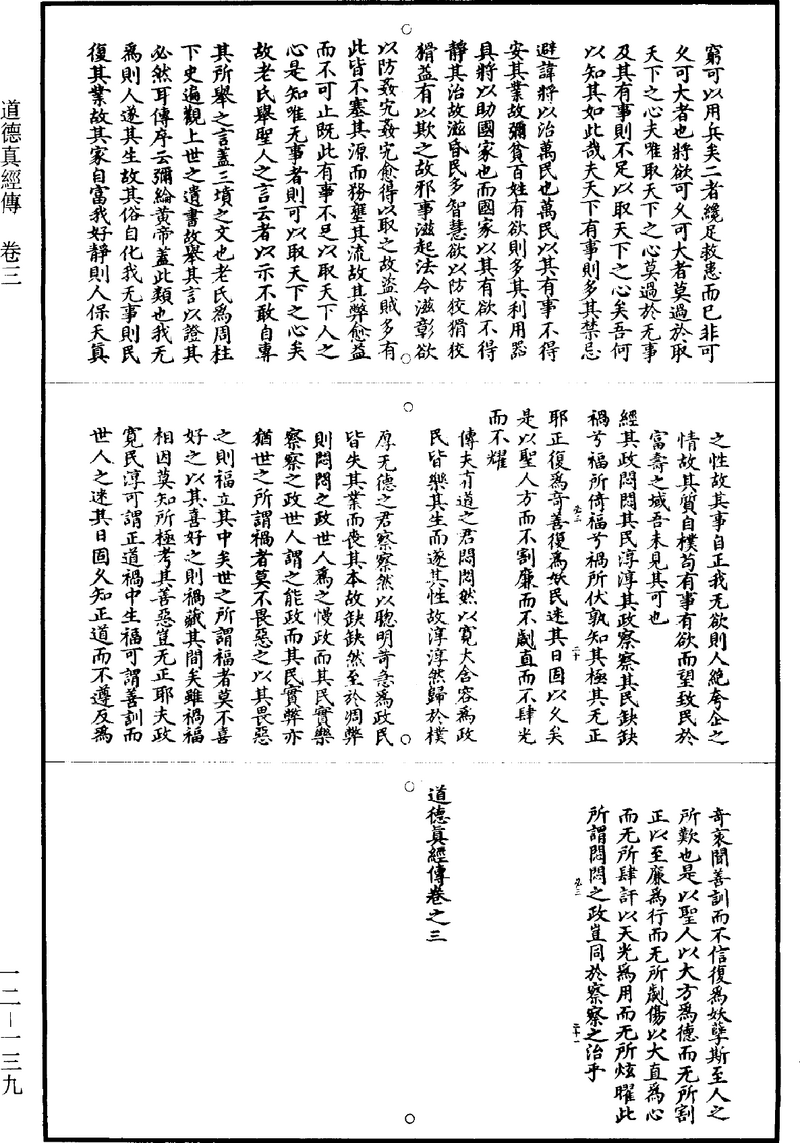 道德真經傳　卷三
窮可以用兵矣二者纔足救患而已非可
久可大者也將欲可久可大者莫過於取
天下之心夫唯取天下之心莫過於无事
及其有事則不足以取天下之心矣吾何
以知其如此哉夫天下有事則多其禁忌
避諱將以治萬民也萬民以其有事不得
安其業故彌貧百姓有欲則多其利用器
具將以助國家也而國家以其有欲不得
靜其治故滋昏民多智慧欲以防狡猾狡
猾益有以欺之故邪事滋起法令滋彰欲
以防姦宄姦宄愈得以取之故盜賊多有
此皆不塞其源而務壅其流故其弊愈益
而不可止旣此有事不足以取天下人之
心是知唯无事者則可以取天下之心矣
故老氏舉聖人之言云者以示不敢自專
其所舉之言蓋三墳之文也老氏爲周柱
下史遍觀上世之遺書故舉其言以證其
必然耳傳序云彌綸黃帝蓋此類也我无
爲則人遂其生故其俗自化我无事則民
復其業故其家自富我好靜則人保天真
之性故其事自正我无欲則人絕夸企之
情故其質自樸苟有事有欲而望致民於
富壽之域吾未見其可也
經其政悶悶其民淳淳其政察察其民缺缺
禍兮福所倚福兮禍所伏孰知其極其无正
耶正復爲奇善復爲妖民迷其日固以久矣
是以聖人方而不割廉而不劌直而不肆光
而不耀
傳夫有道之君悶悶然以寬大含容爲政
民皆樂其生而遂其性故淳淳然歸於樸
厚无德之君察察然以聰明苛急爲政民
皆失其業而喪其本故缺缺然至於凋弊
則悶悶之政世人爲之慢政而其民實樂
察察之政世人謂之能政而其民實弊亦
猶世之所謂禍者莫不畏惡之以其畏惡
之則福立其中矣世之所謂福者莫不喜
好之以其喜好之則禍藏其間矣雖禍福
相因莫知所極考其善惡豈无正耶夫政
寬民淳可謂正道禍中生福可謂善訓而
世人之迷其日固久知正道而不遵反爲
奇衺聞善訓而不信復爲妖孽斯至人之
所歎也是以聖人以大方爲德而无所割
正以至廉爲行而无所劌傷以大直爲心
而无所肆訐以天光爲用而无所炫曜此
所謂悶悶之政豈同於察察之治乎
道德真經傳卷之三
一二－一三九